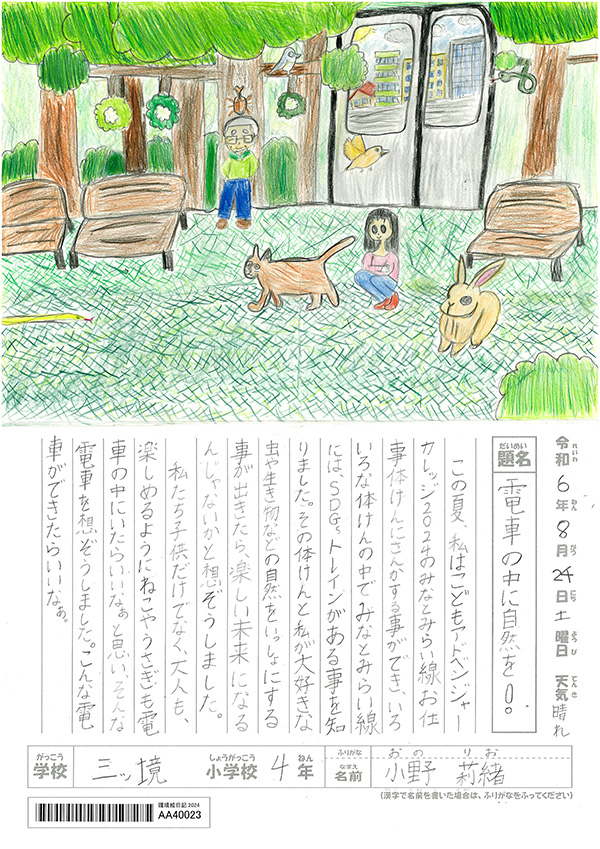 令和6年8月24日土曜日 天気晴れ
れいわ ねん がつ にち ようび てんき
だいめい
題名
電車の中に自然を!。
この夏、私はこどもアドベンジャー
カレッジ2024のみなとみらい線お仕
事体けんにさんかする事ができ、いろ
いろな体けんの中でみなとみらい線
には、SDGsトレインがある事を知
りました。その体けんと私が大好きな
虫や生き物などの自然をいっしょにする
事が出きたら、楽しい未来になる
んじゃないかと想ぞうしました。
私たち子供だけでなく、大人も、
楽しめるようにねこやうさぎも電
車の中にいたらいいなぁと思い、そんな
電車を想ぞうしました。こんな電
車ができたらいいなぁ。
がっこう しょうがっこう ねん ふりがな おの りお
学校 三ッ境 小学校 4年 なまえ 名前 小野 莉緒
(漢字で名前を書いた場合は、ふりがなをふってください)
環境絵日記2024
AA40023